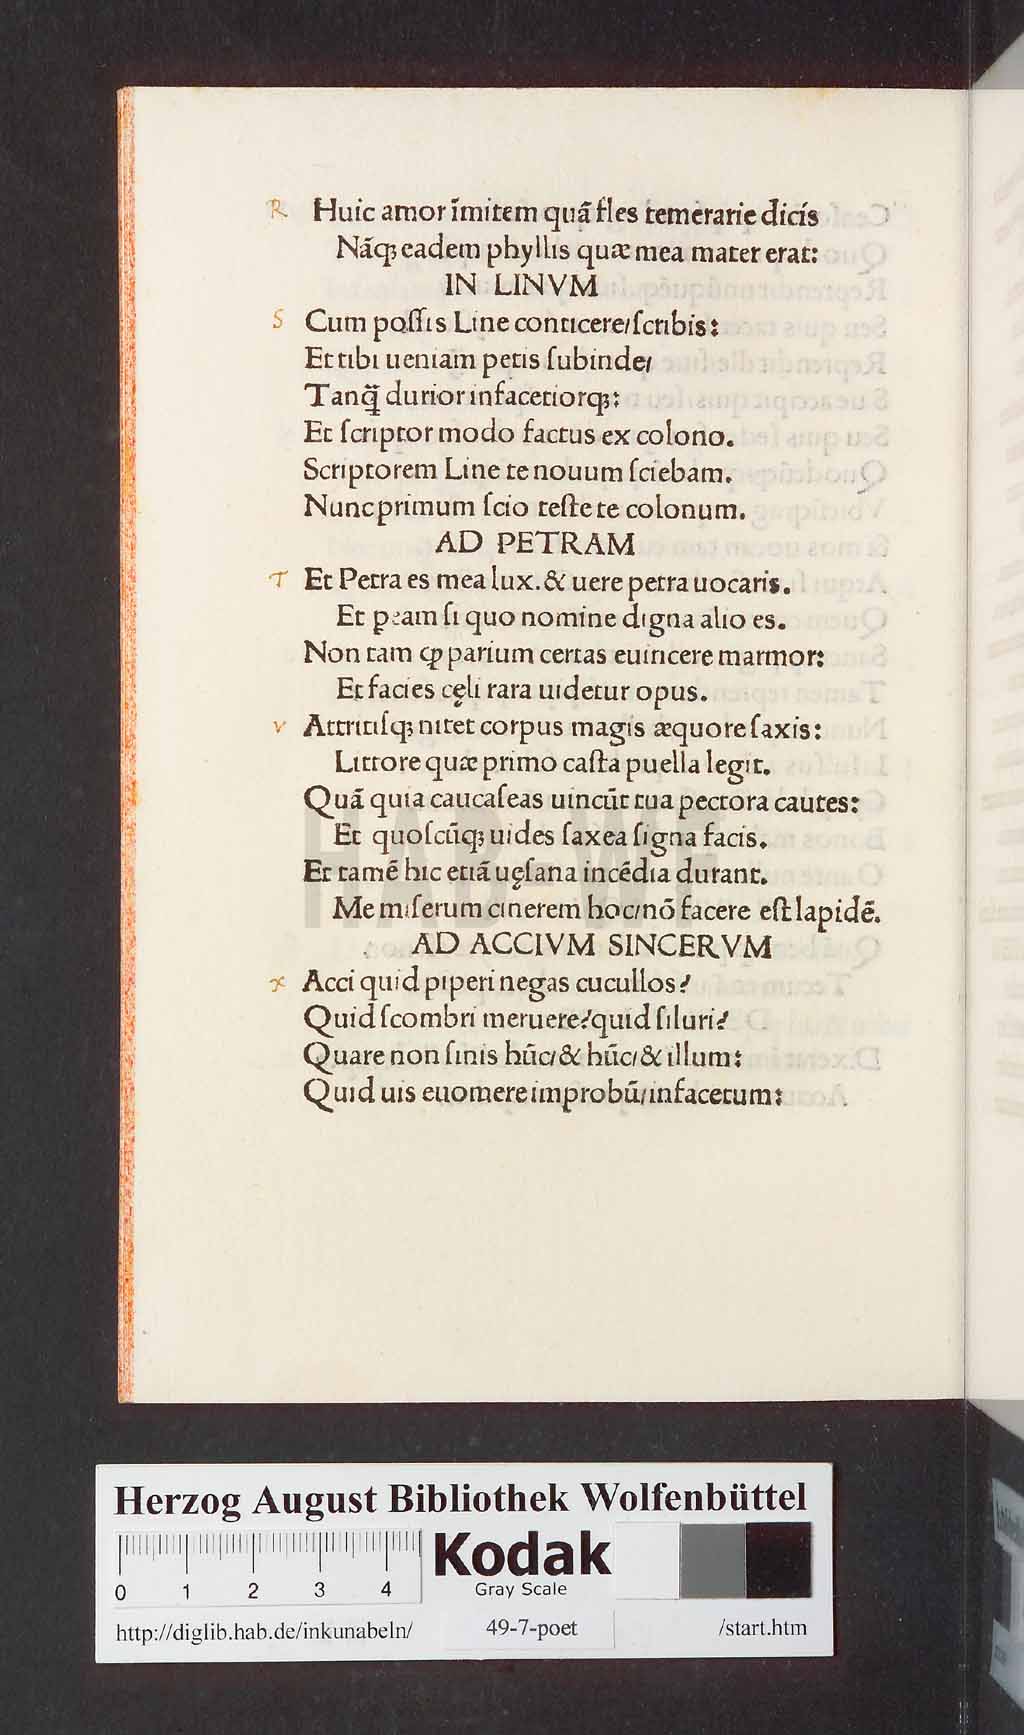 R Huic amor īmitem quã fles temerarie dicis
Nãq; eadem phyllis quæ mea mater erat:
IN LINVM
S Cum poſſis Line conticere/ſcribis:
Et tibi ueniam petis ſubinde/
Tanq̃ durior infacetiorq;:
Et ſcriptor modo factus ex colono.
Scriptorem Line te nouum ſciebam.
Nunc primum ſcio teſte te colonum.
AD PETRAM
T Et Petra es mea lux. & uere petra uocaris.
Et ſi quo nomine digna alio es.
Non tam ꝙ parium certas euincere marmor:
Et facies cęli rara uidetur opus.
V Attritiſq; nitet corpus magis æquore ſaxis:
Littore quæ primo caſta puella legit.
Quã quia caucaſeas uincũt tua pectora cautes:
Et quoſcũq; uides ſaxea ſigna facis.
Et tamẽ hic etiã uęſana incẽdia durant.
Me miſerum cinerem hoc/nõ facere eſt lapidẽ.
AD ACCIVM SINCERVM
X Acci quid piperi negas cucullos?
Quid ſcombri meruere? quid ſiluri?
Quare non ſinis hũc/& hũc/& illum:
Quid uis euomere improbũ/infacetum:
HAB-WF
Herzog August Bibliothek Wolfenbüttel
0 1 2 3 4
Kodak
Gray Scale
http://diglib.hab.de/inkunabeln/ 49-7-poet /start.htm